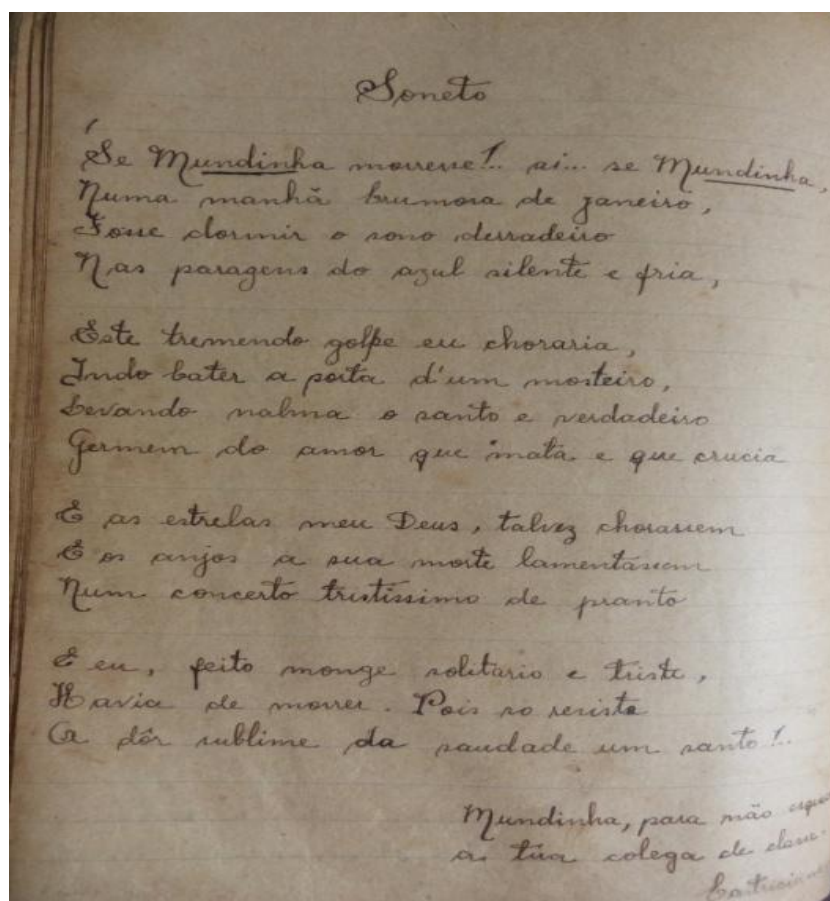 Soneto
Se Mundinha morresse!.. ai... se Mundinha,
Numa manhã brumosa de janeiro,
Fosse dormir o sono derradeiro
Nas paragens do azul silente e fria,
Este tremendo golpe eu choraria,
Indo bater a porta d'um mosteiro,
Levando nalma o santo e verdadeiro
Germem do amor que mata e que crucia
E as estrelas meu Deus, talvez chorassem
E os anjos a sua morte lamentassem
Num concerto tristissimo de pranto
E eu, feito monge solitario e triste,
Havia de morrer. Pois so resiste
A dôr sublime da saudade um santo!..
Mundinha, para não
a tua colega de classe.